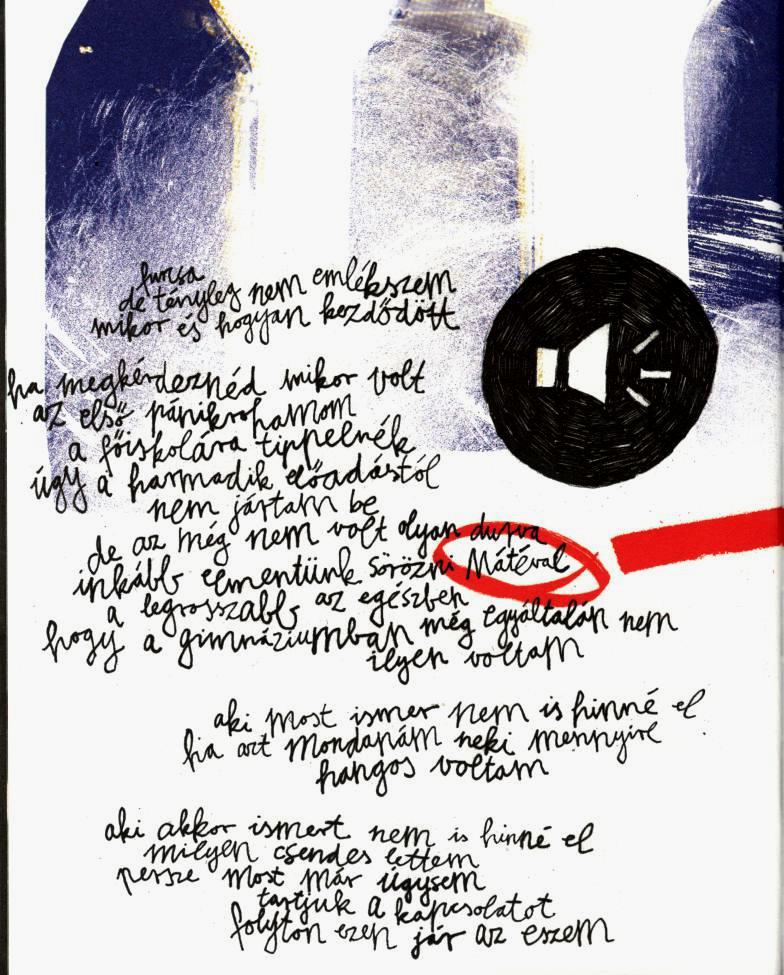 furcsa
de tényleg nem emlékszem
mikor és hogyan kezdődött
ha megkérdeznéd mikor volt
az első pánikrohamom
a főiskolára tippelnék
úgy a harmadik előadástól
nem jártam be
de az még nem volt olyan durva
inkább elmentünk sörözni Mátéval
a legrosszabb az egészben
hogy a gimnáziumban még egyáltalán nem
ilyen voltam
aki most ismer nem is hinné el
ha azt mondanám neki mennyire
hangos voltam
aki akkor ismert nem is hinné el
milyen csendes lettem
persze most már úgysem
tartjuk a kapcsolatot
folyton ezen jár az eszem